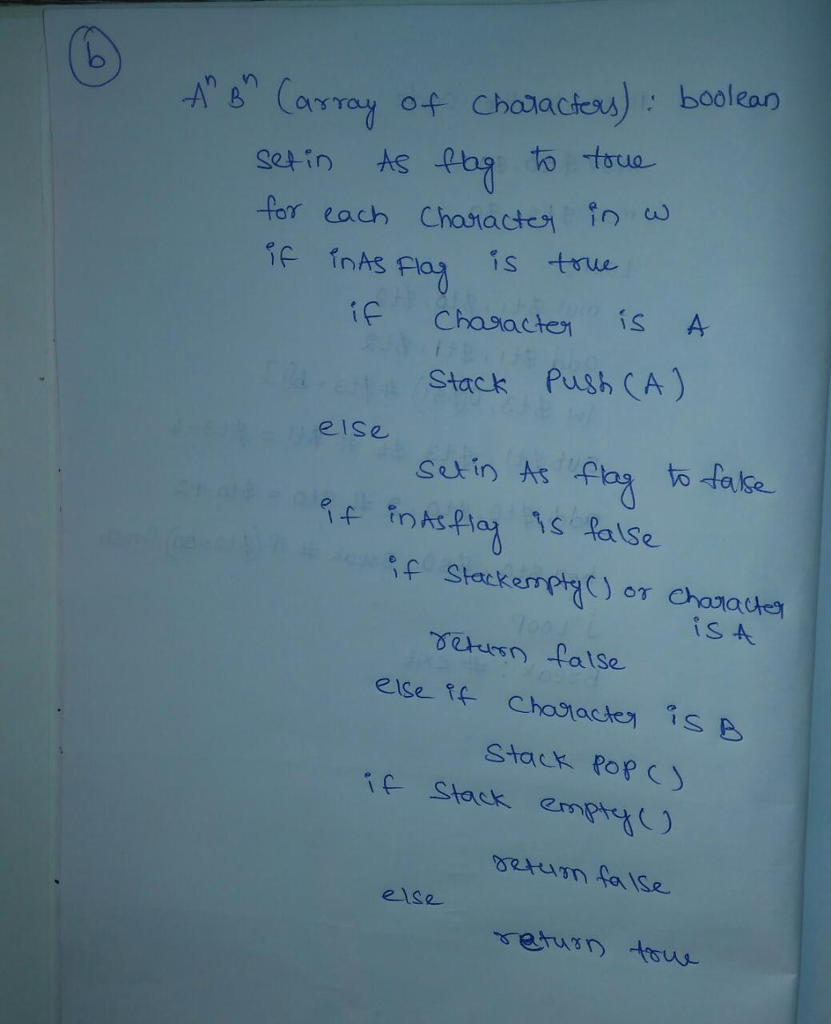 b
Aⁿ Bⁿ (array of characters) : boolean
setin As flag to true
for each character in w
if inAs Flag is true
if character is A
Stack Push (A)
else
setin As flag to false
if inAsflag is false
if Stackempty() or character
is A
return false
else if character is B
Stack POP ()
if Stack empty()
return false
else
return true